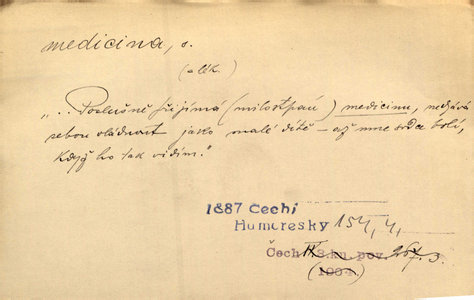 medicina, s.
(= lék.)
„.. Poslušně přijímá (milostpán) medicinu, nedává
sebou vládnout jako malé dítě – až mne srdce bolí,
když ho tak vidím."
1887 Čechi
Humoresky 154, 4,
Čech IV. 3. ku. pov. 267. 3.
(1904)